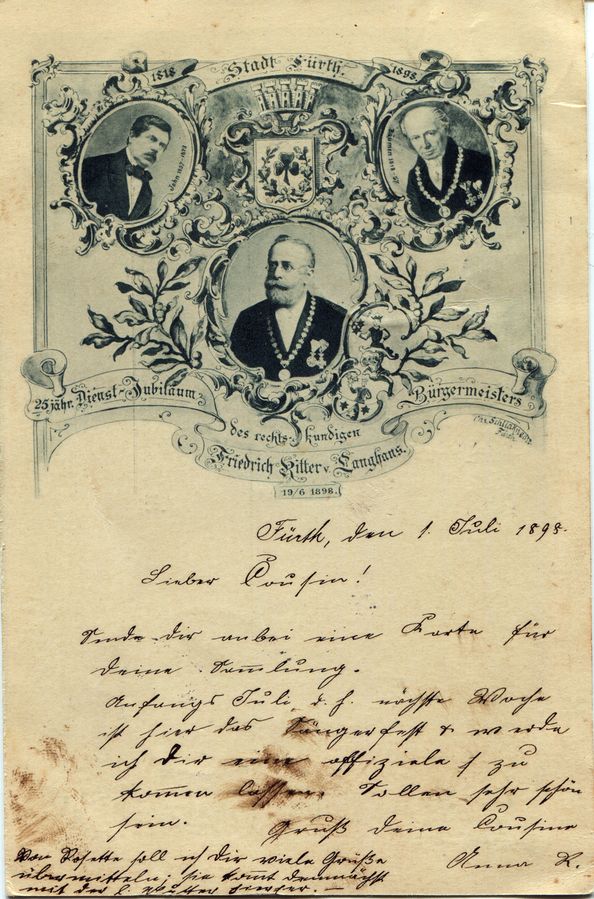 1818 Stadt Fürth. 1898.
25jähr. Dienst-Jubiläum
des rechtskundigen
Bürgermeisters
Friedrich Ritter v. Langhans.
19/6 1898.
Fürth, den 1. Juli 1898.
Lieber Cousin!
Sende dir anbei eine Karte für
deine Sammlung.
Anfangs Juli d. h. nächste Woche
ist hier das Sängerfest & werde
ich dir eine offiziele zu
kommen lassen. Sollen sehr schön
sein. Gruß deine Cousine
Anna R.
Von Babette soll ich dir viele Grüße
übermitteln; sie kommt demnächst
mit der l. Mutter